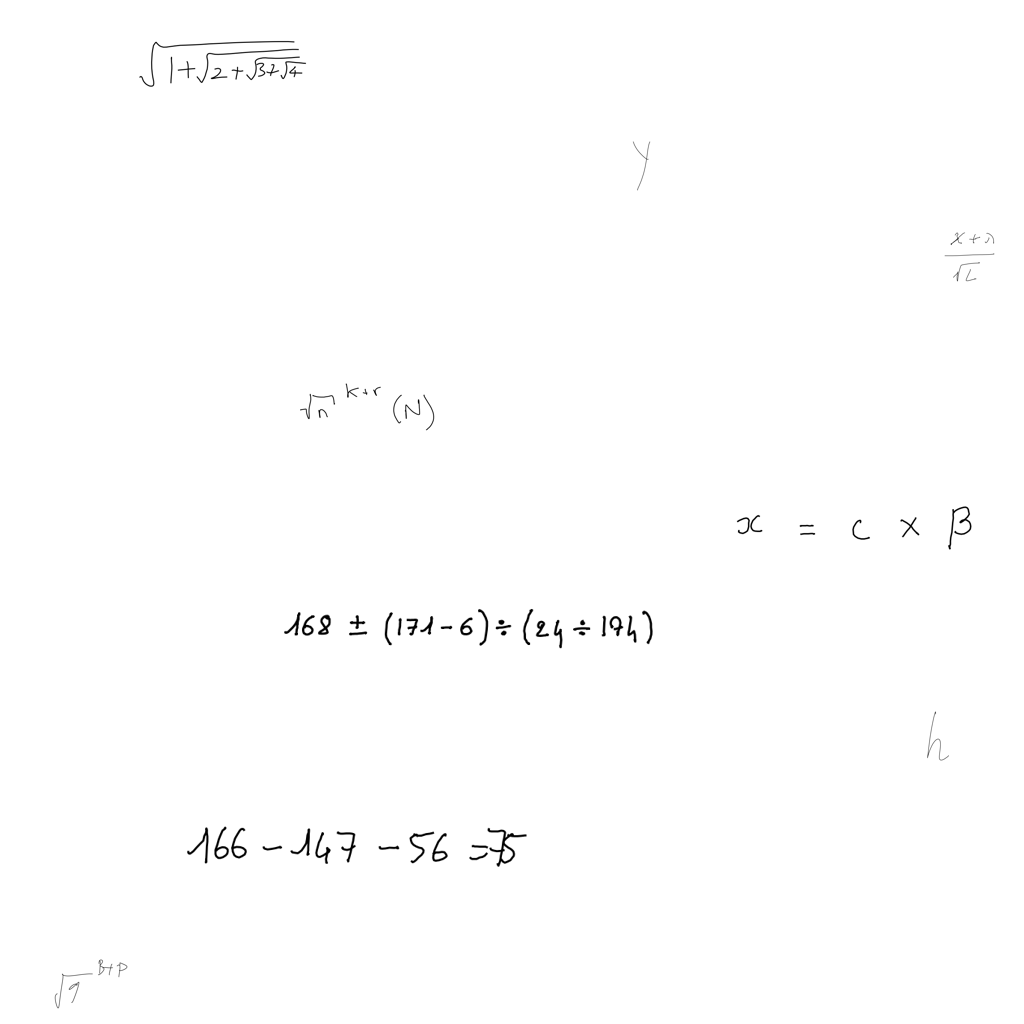 √(1+√(2+√(3+√4)))
y
(x+λ)/√L
√n^(k+r) (N)
x = c × β
168 ± (171-6) ÷ (24 ÷ 194)
h
166 - 147 - 56 = 75
√9^(B+P)